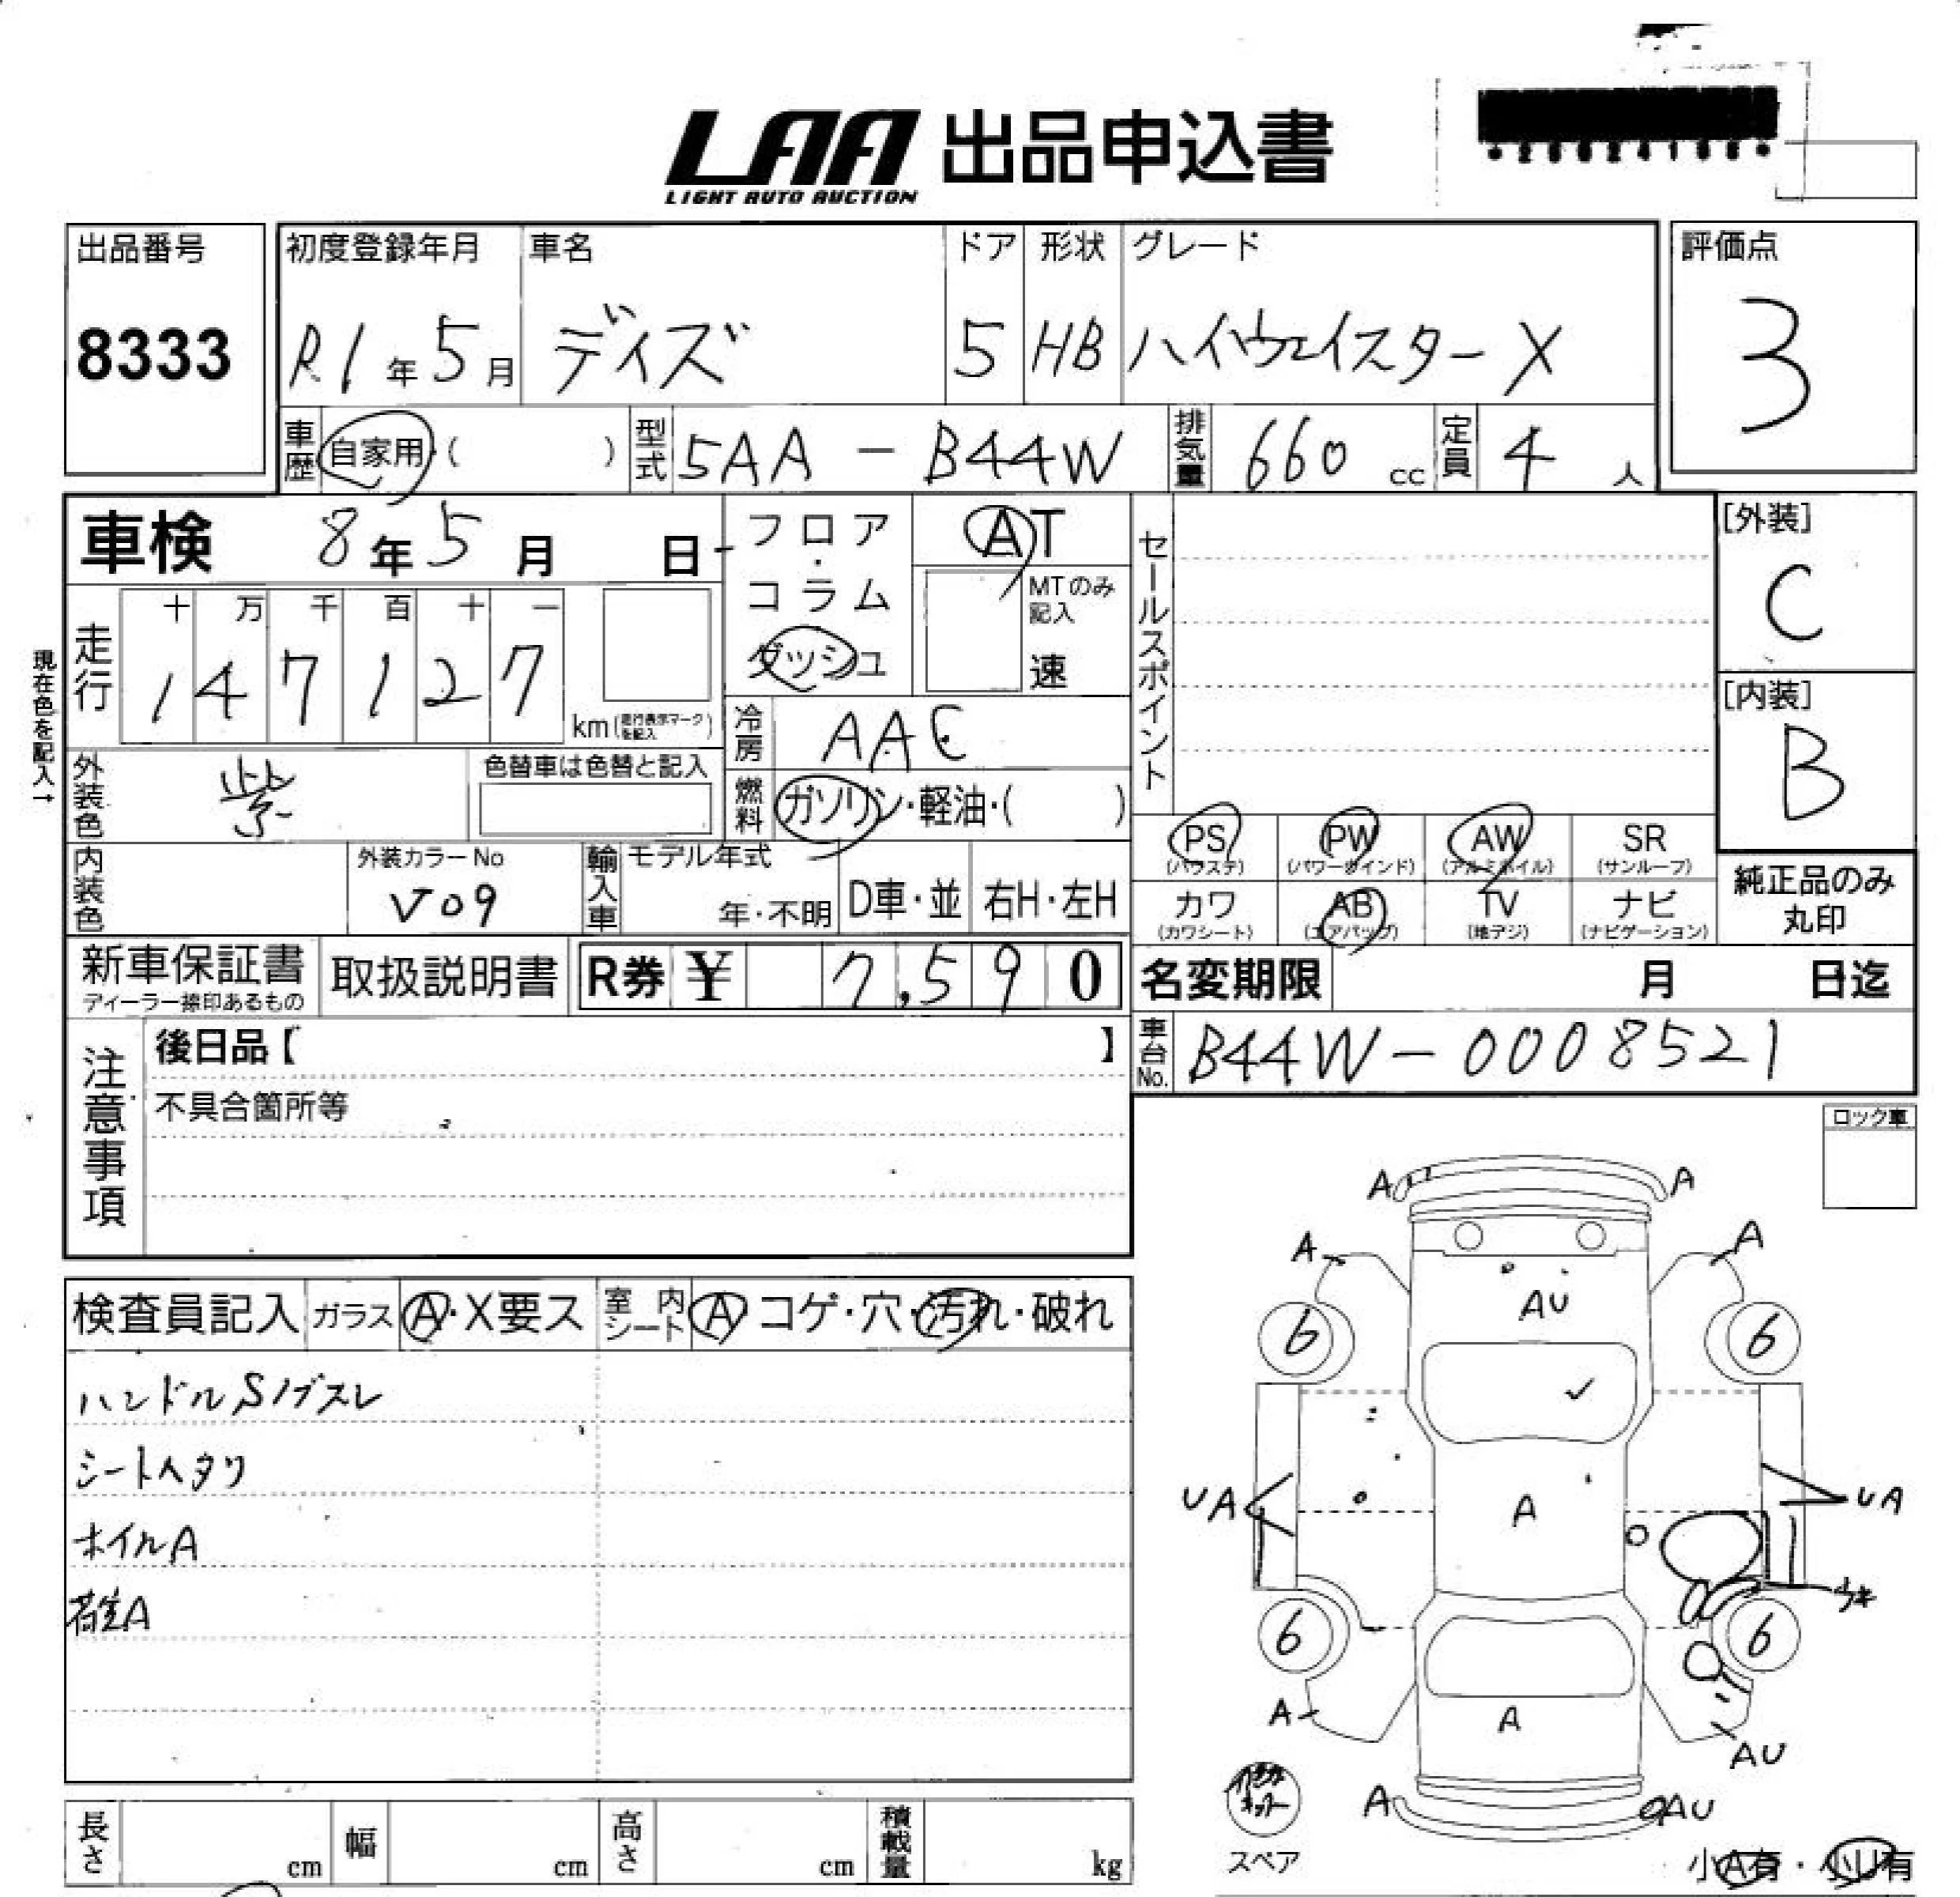 LAA 出品申込書
LIGHT AUTO AUCTION
出品番号
8333
初度登録年月
R1年5月
車名
デイズ
ドア
5
形状
HB
グレード
ハイウェイスターX
評価点
3
車歴
自家用・( )
型式
5AA-B44W
排気量
660 cc
定員
4 人
車検 8年5月 日
フロア・コラム
ダッシュ
AT
MTのみ記入
速
セールスポイント
[外装]
C
[内装]
B
現在色を記入→
走行
十 万 千 百 十 一
147127
km(走行表示マークを記入)
冷房
AAC
外装色
紫
色替車は色替と記入
燃料
ガソリン・軽油・( )
PS
(パワステ)
PW
(パワーウインド)
AW
(アルミホイル)
SR
(サンルーフ)
内装色
外装カラーNo
V09
輸入車
モデル年式
年・不明
D車・並
右H・左H
カワ
(カワシート)
AB
(エアバッグ)
TV
(地デジ)
ナビ
(ナビゲーション)
純正品のみ
丸印
新車保証書
ディーラー捺印あるもの
取扱説明書
R券 ¥ 7,590
名変期限 月 日迄
注意事項
後日品【 】
不具合箇所等
車台No.
B44W-0008521
ロック車
検査員記入
ガラス
A・X要ス
室内シート
A・コゲ・穴・汚れ・破れ
ハンドルSノブスレ
シートヘタリ
ホイルA
荷室A
A A
A A
AU
6 6
UA A UA
6 6
A A AU
A AU
スペア
小A有・小U有
長さ cm
幅 cm
高さ cm
積載量 kg